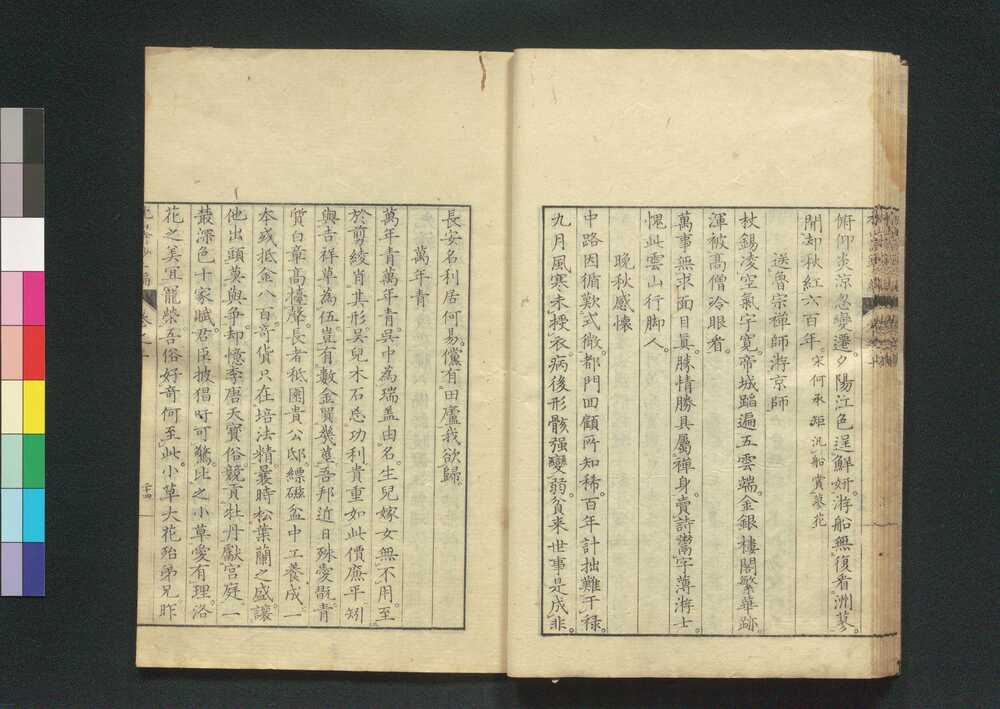 俯仰炎涼忽變遷。夕陽江色逞鮮妍。游船無復看洲蓼。
閒却秋紅六百年。宋何承矩汎船賞蓼花
送魯宗禪師游京師
杖錫凌空氣宇寬。帝城蹈遍五雲端。金銀樓閣繁華跡。
渾被高僧冷眼看。
萬事無求面目眞。勝情勝具屬禪身。賣詩鬻字薄游士。
愧此雲山行脚人。
晚秋感懷
中路因循歎式微。都門回顧所知稀。百年計拙難干祿。
九月風寒未授衣。病後形骸强變弱。貧来世事是成非。
長安名利居何易。儻有田廬我欲歸。
萬年青
萬年青萬年青。吳中為瑞盖由名。生兒嫁女無不用。至
於剪綾肖其形。吳兒木石忌功利。貴重如此價廉平。矧
與吉祥草為伍。豈有數金買幾莖。吾邦近日殊愛翫。青
質白章高擅聲。長者秪園貴公邸。縹磁盆中工養成。一
本或抵金八百。奇貨只在培法精。曩時松葉蘭之盛。讓
他出頭莫與争。却憶李唐天寶俗。競貢牡丹獻宮庭。一
叢深色十家賦。君臣披猖吁可驚。比之小草愛有理。洛
花之美宜寵榮。吾俗好奇何至此。小草大花殆弟兄。昨